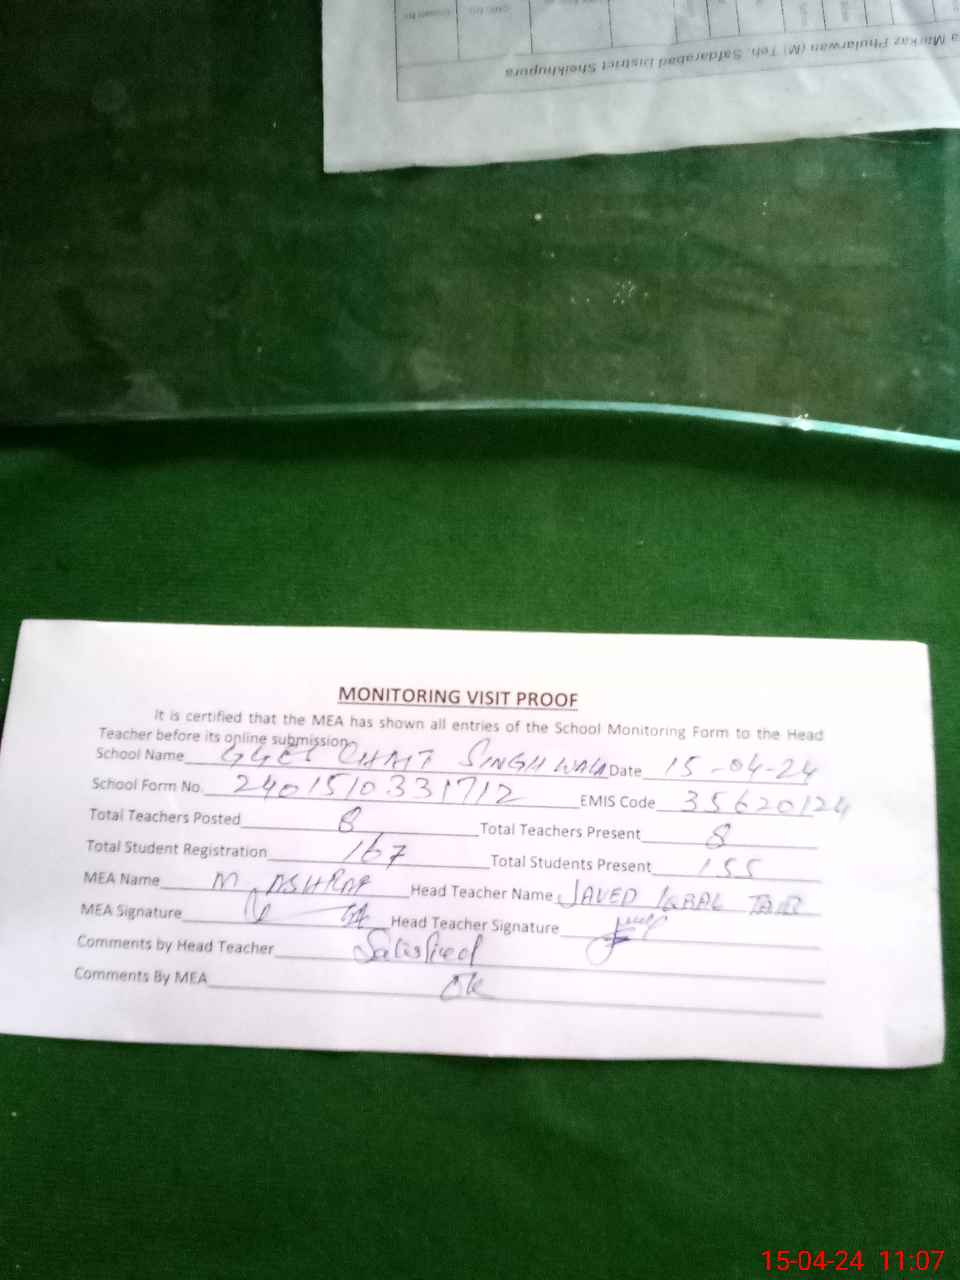 a Markaz Phularwan (M) Teh. Safdarabad District Sheikhupura
MONITORING VISIT PROOF
It is certified that the MEA has shown all entries of the School Monitoring Form to the Head
Teacher before its online submission.
School Name SINGH WALA Date 15-04-24
School Form No. 2401510331712 EMIS Code 35620124
Total Teachers Posted 8 Total Teachers Present 8
Total Student Registration 167 Total Students Present 155
MEA Name M. ASHRAF Head Teacher Name JAVED IQBAL
MEA Signature Head Teacher Signature
Comments by Head Teacher Satisfied
Comments By MEA OK
15-04-24 11:07